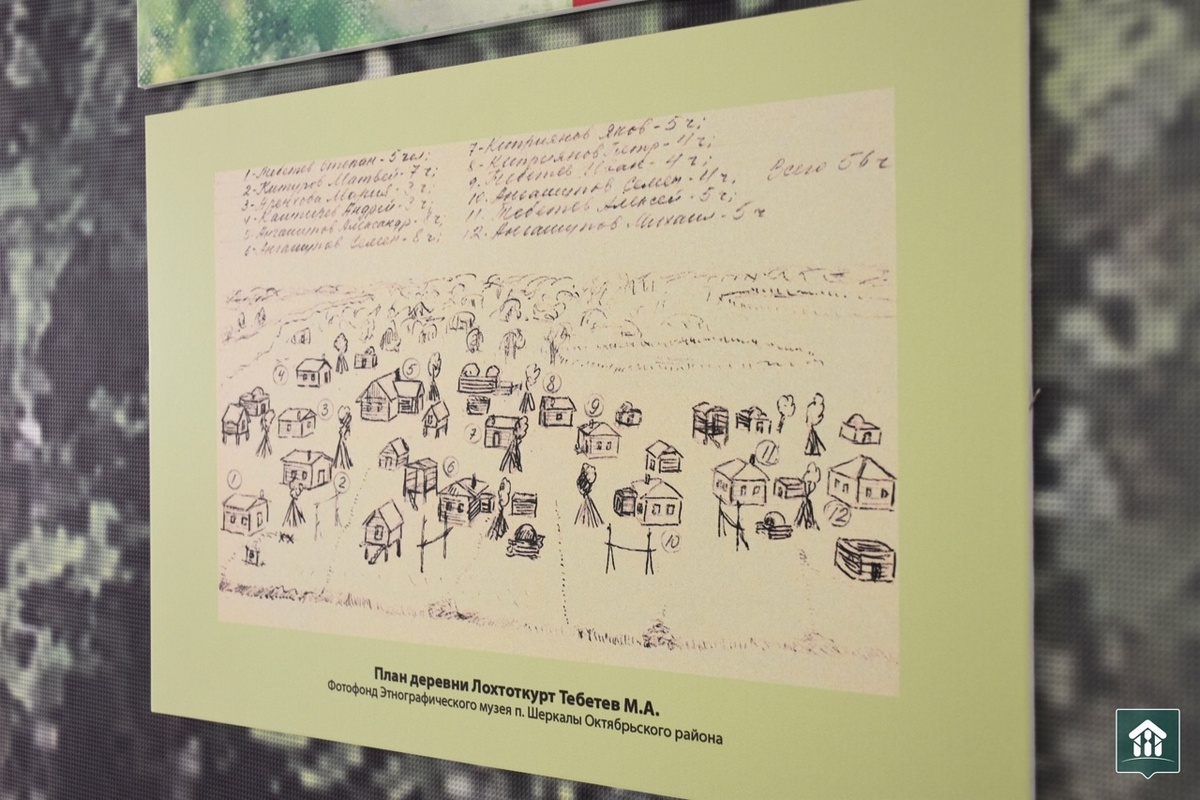 1- Тебетев Степан - 5 чел;
2- Китиров Матвей - 7 ч;
3- Мария - 3 ч;
4- Андрей - 3 ч;
5- Ангашупов Александр -
6- Ангашупов Семен - 8 ч;
7- Киприянов Яков - 5 ч;
8- Киприянов Петр - 4 ч;
9. Тебетев Иван - 4 ч;
10. Ангашупов Семен - 4 ч.
11. Тебетев Алексей - 5 ч;
12. Ангашупов Михаил - 5 ч
Всего 56 ч
4
5
8
3
9
7
1
2
6
11
12
10
План деревни Лохтоткурт Тебетев М.А.
Фотофонд Этнографического музея п. Шеркалы Октябрьского района